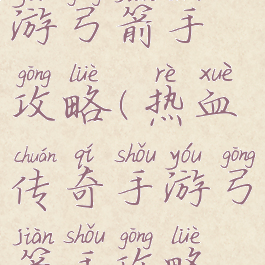 游弓箭手
gōng lüè rè xuè
攻略(热血
chuán qí shǒu yóu gōng
传奇手游弓
jiàn shǒu gōng lüè
箭手攻略